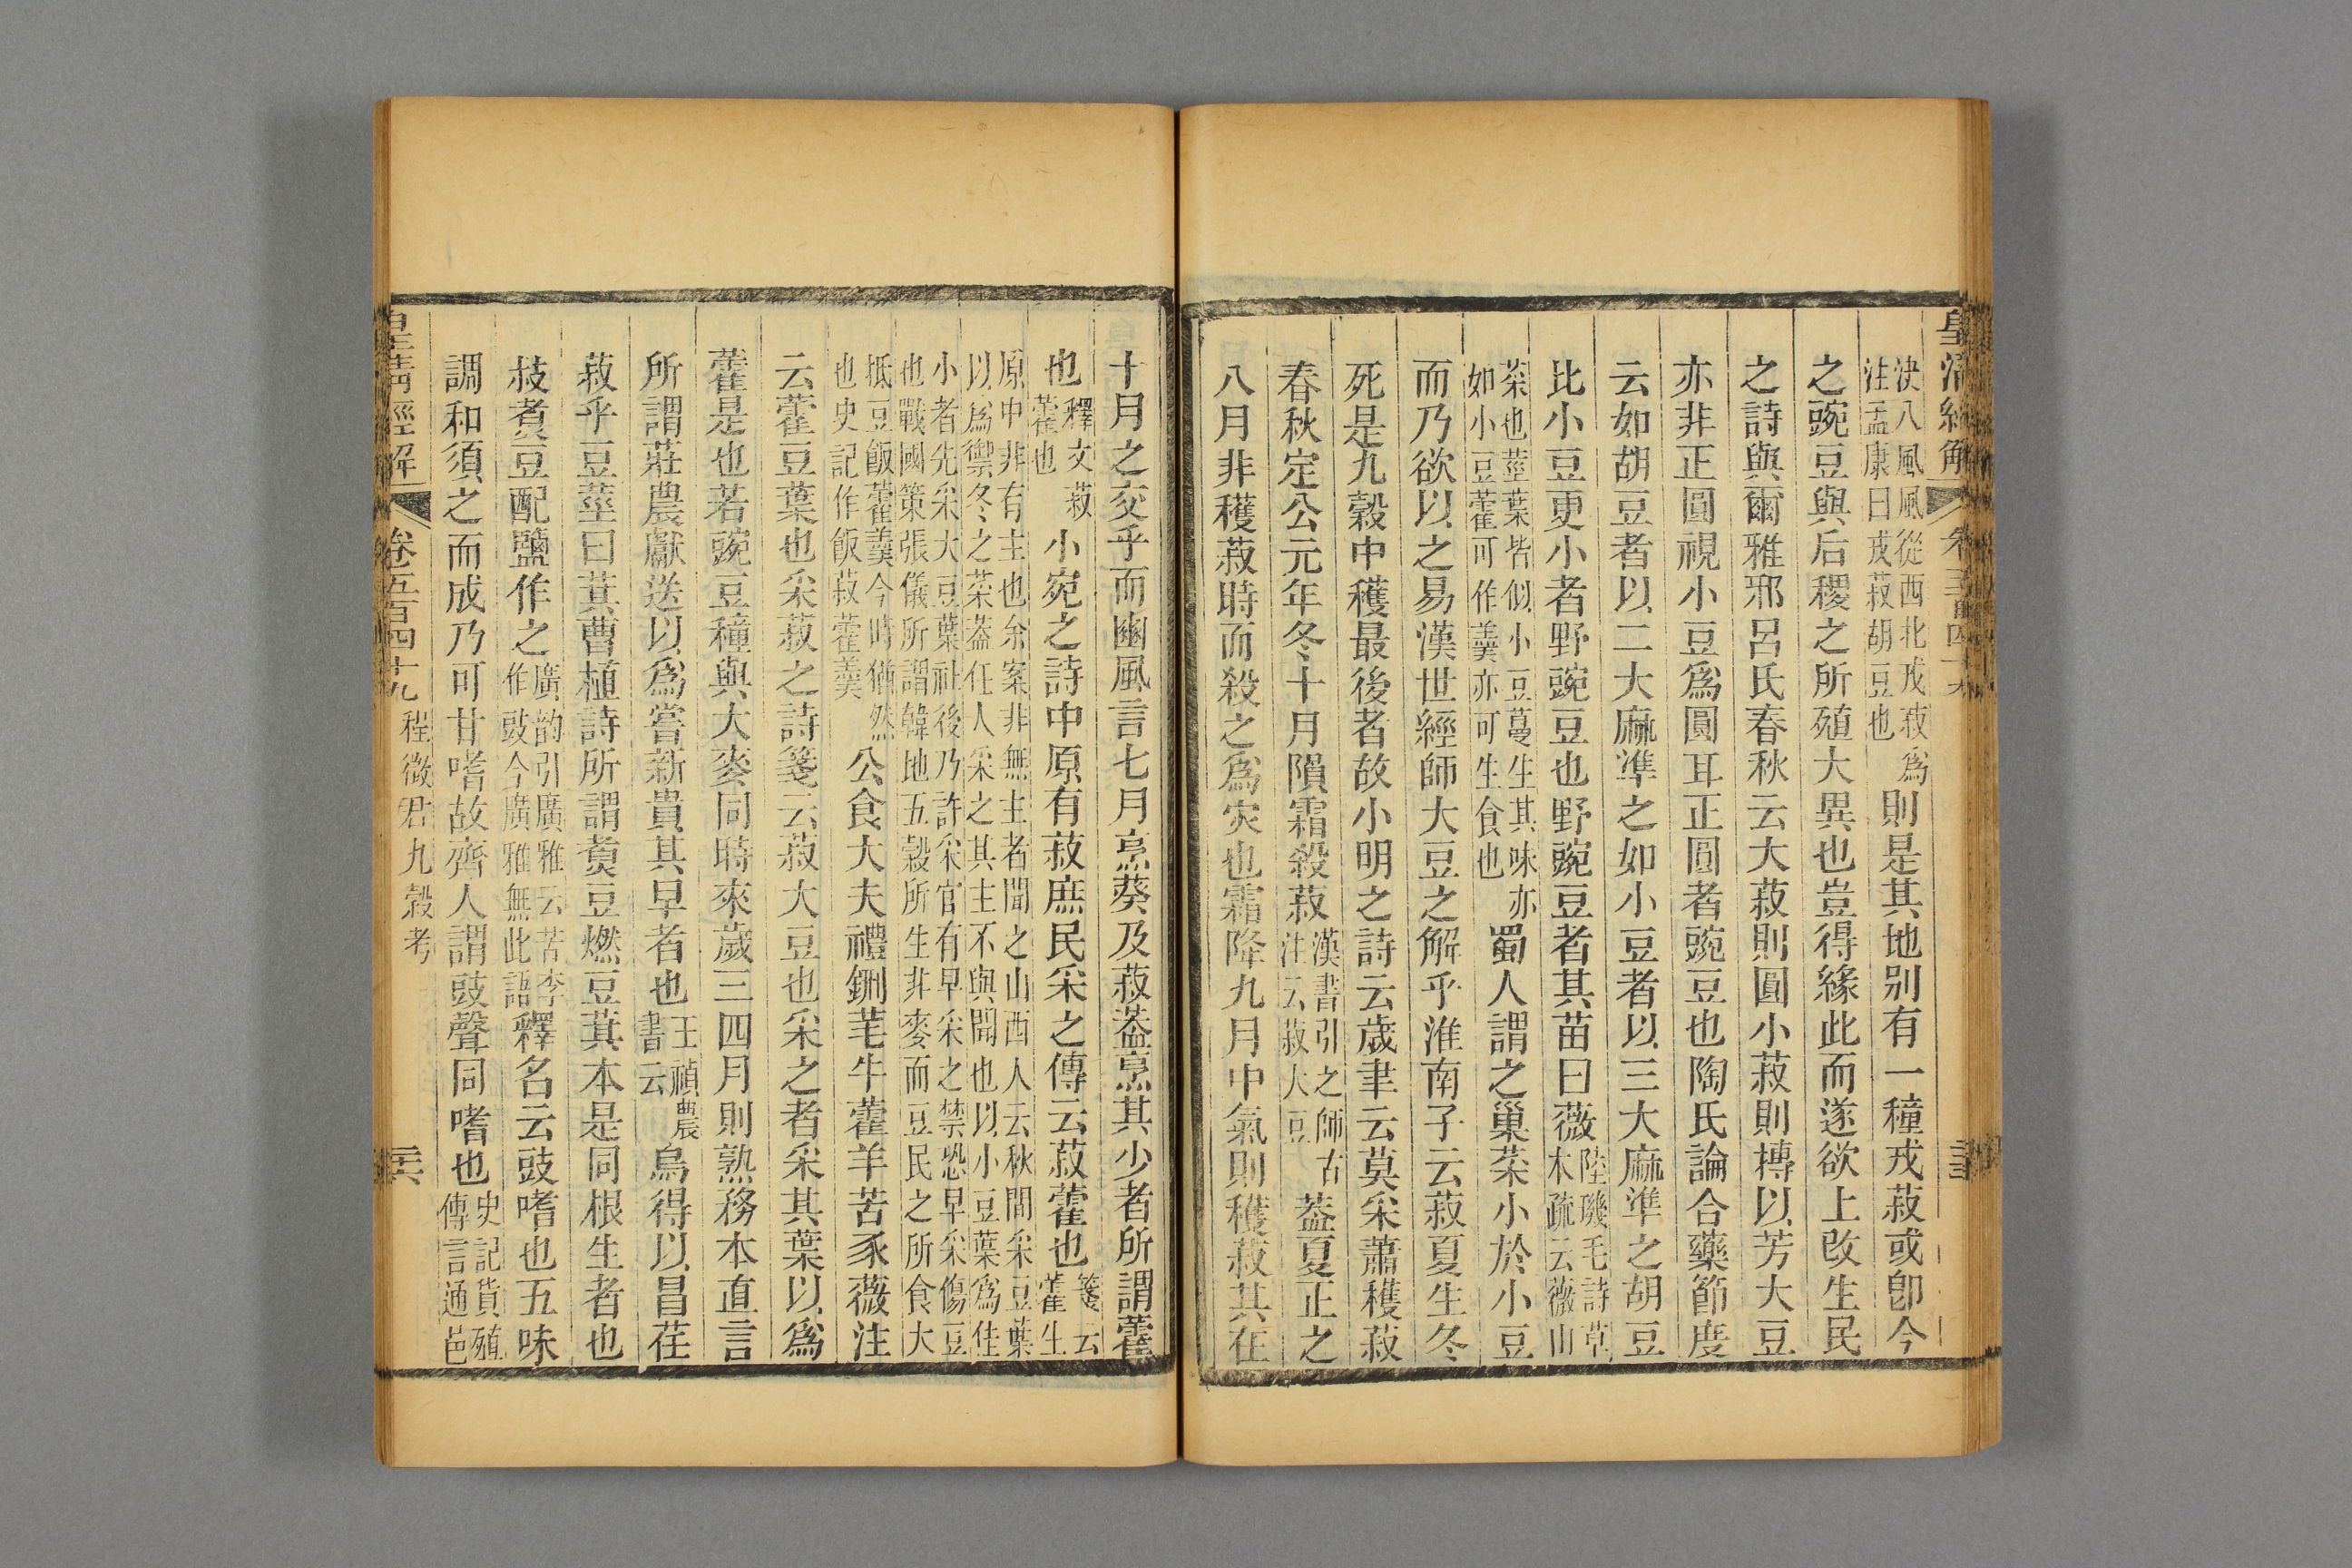 決八風風從西北戎菽為
注孟康曰戎菽胡豆也
則是其地別有一種戎菽或卽今
之豌豆與后稷之所殖大異也豈得緣此而遂欲上改生民
之詩與爾雅邪呂氏春秋云大菽則圓小菽則摶以芳大豆
亦非正圓視小豆爲圓耳正圓者豌豆也陶氏論合藥節度
云如胡豆者以二大麻準之如小豆者以三大麻準之胡豆
比小豆更小者野豌豆也野豌豆者其苗曰薇
陸璣毛詩草
木疏云薇山
菜也莖葉皆似小豆蔓生其味亦
如小豆藿可作羹亦可生食也
蜀人謂之巢菜小於小豆
而乃欲以之易漢世經師大豆之解乎淮南子云菽夏生冬
死是九穀中穫最後者故小明之詩云歲聿云莫采蕭穫菽
春秋定公元年冬十月隕霜殺菽
漢書引之師古
注云菽大豆
蓋夏正之
八月非穫菽時而殺之爲灾也霜降九月中氣則穫菽其在
十月之交乎而豳風言七月烹葵及菽葢烹其少者所謂藿
也
釋文菽
藿也
小宛之詩中原有菽庶民采之傳云菽藿也
箋云
藿生
原中非有主也余案非無主者聞之山西人云秋間采豆葉
以爲禦冬之菜葢任人采之其主不與聞也以小豆葉爲佳
小者先采大豆葉社後乃許采官有早采之禁恐早采傷豆
也戰國策張儀所謂韓地五穀所生非麥而豆民之所食大
抵豆飯藿羹今時猶然
也史記作飯菽藿羹
公食大夫禮鉶芼牛藿羊苦豕薇注
云藿豆葉也采菽之詩箋云菽大豆也采之者采其葉以爲
藿是也若豌豆種與大麥同時來歲三四月則熟務本直言
所謂莊農獻送以爲嘗新貴其早者也
王禎農
書云
烏得以昌荏
菽乎豆莖曰萁曹植詩所謂煑豆燃豆萁本是同根生者也
敊煑豆配鹽作之
廣韵引廣雅云苦李
作豉今廣雅無此語
釋名云豉嗜也五味
調和須之而成乃可甘嗜故齊人謂豉聲同嗜也
史記貨殖
傳言通邑
皇清經解
卷五百四十九
程徵君九穀考